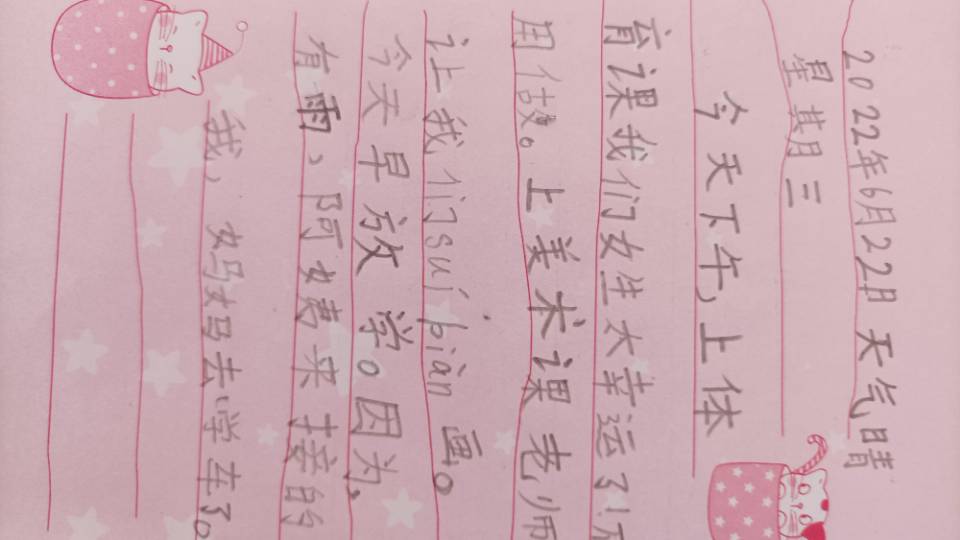 2022年6月22日 天气晴
星期三
今天下午,上体
育课我们女生大幸运了!不
用 。上美术课 老师
让我们suí biàn 画。
今天早放学。因为,
有雨、阿姨来接的
我,妈妈去学车了。